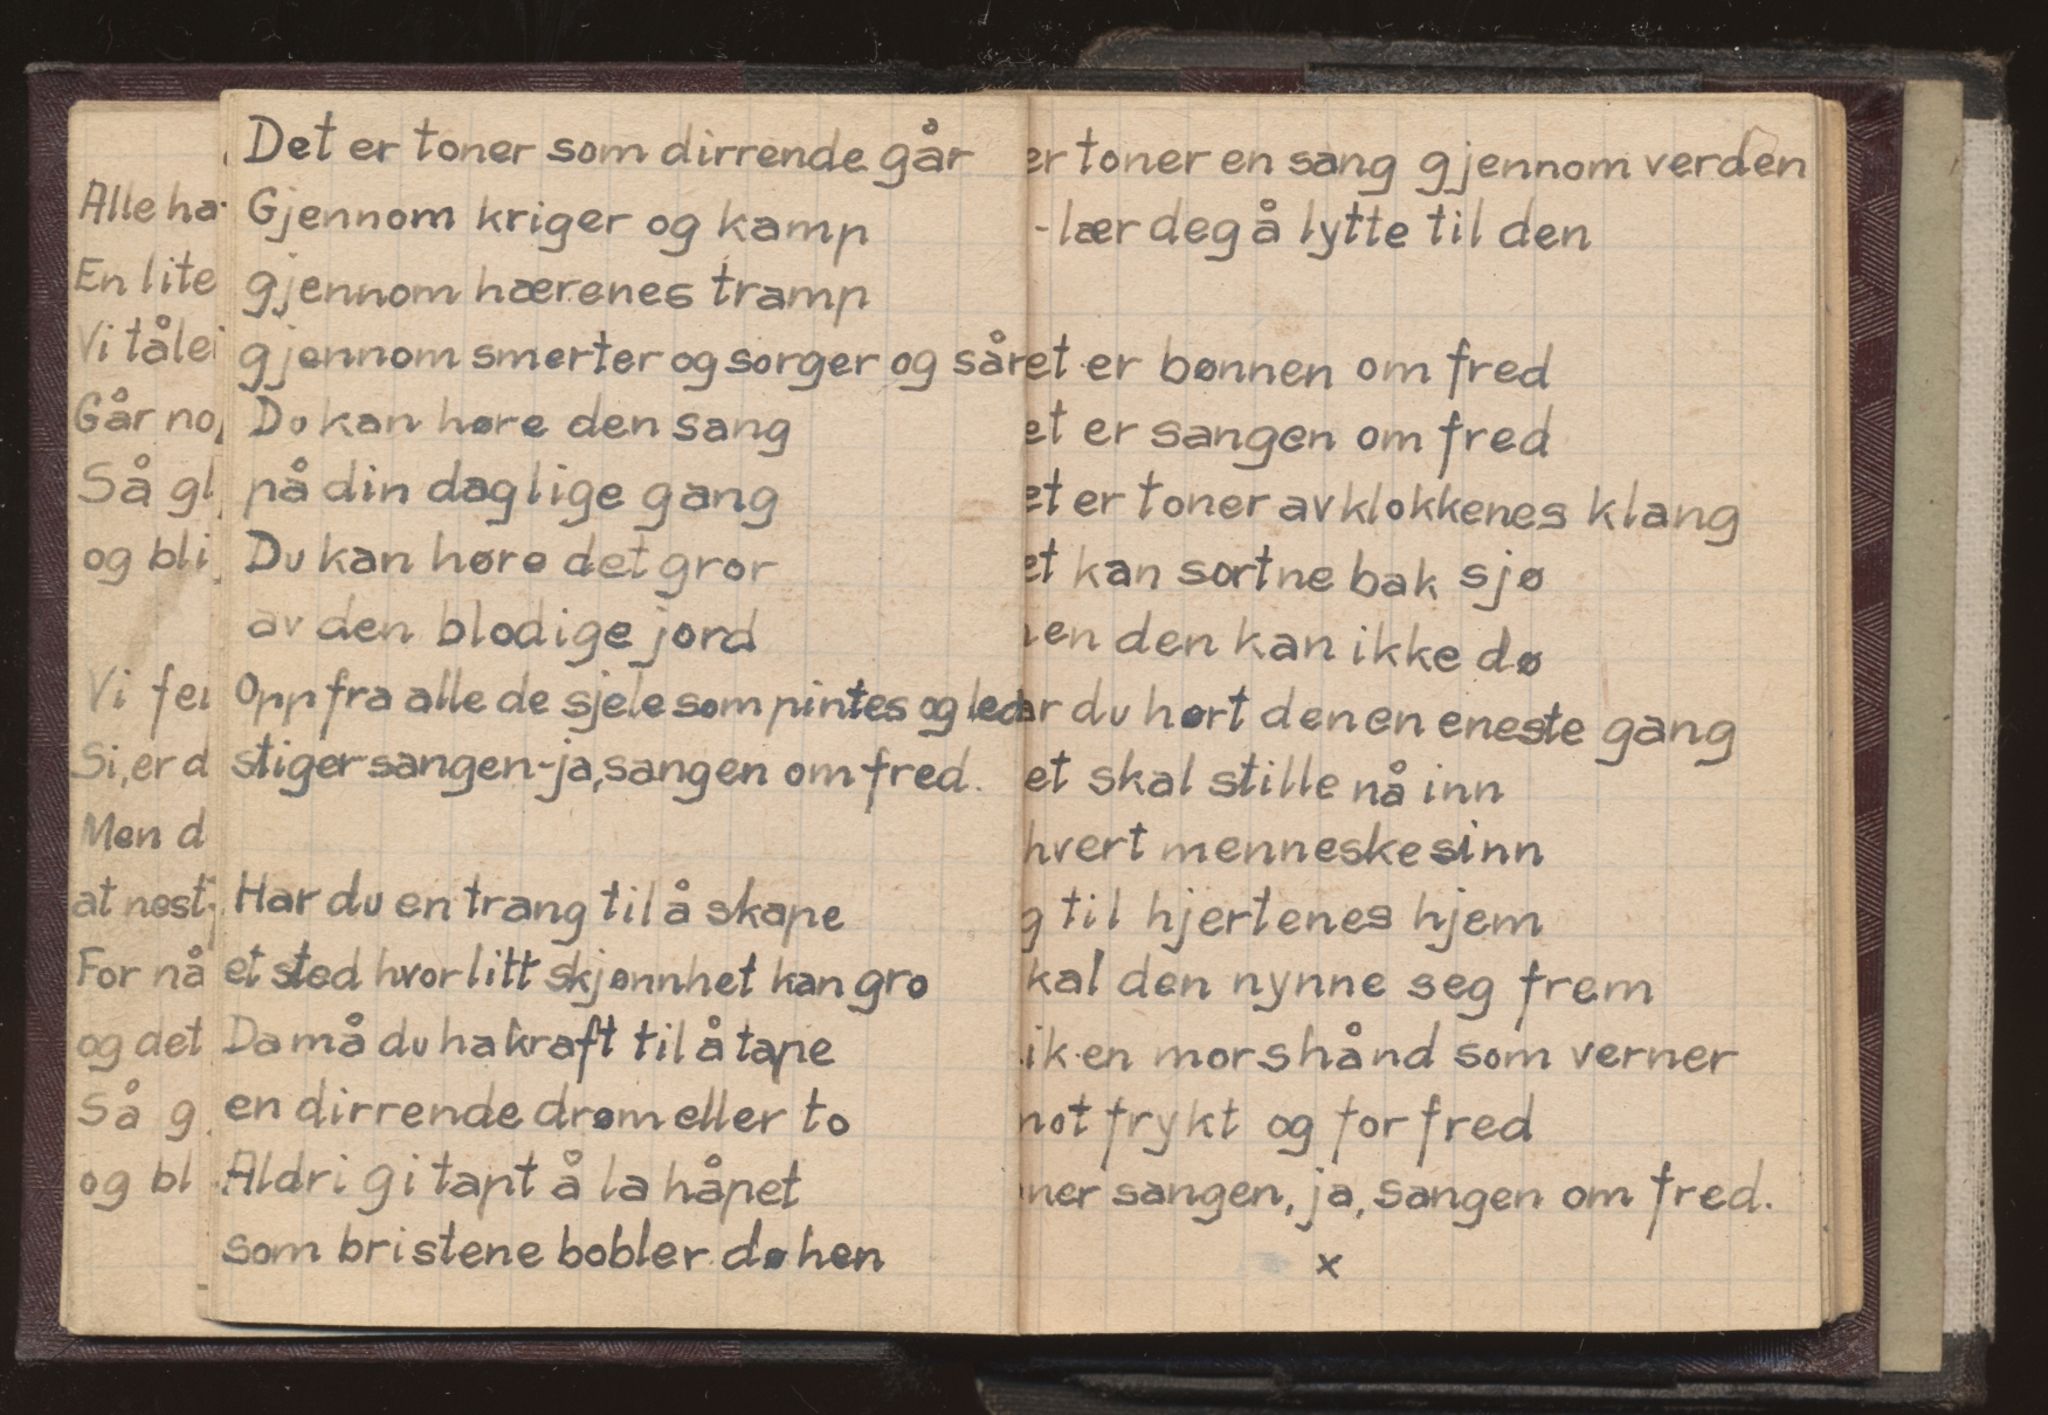 Alle ha
En lite
Vi tåle
Går no
Så gl
og bli
Vi fe
Si, er d
Men d
at nest
For nå
og det
Så g
og bl
Det er toner som dirrende går
Gjennom kriger og kamp
gjennom hærenes tramp
gjennom smerter og sorger og sår
Du kan høre den sang
på din daglige gang
Du kan høre det gror
av den blodige jord
Opp fra alle de sjele som pintes og led
stiger sangen - ja, sangen om fred.
Har du en trang til å skape
et sted hvor litt skjønnhet kan gro
Da må du ha kraft til å tape
en dirrende drøm eller to
Aldri gi tapt å la håpet
som bristene bobler dø hen
er toner en sang gjennom verden
- lær deg å lytte til den
et er bønnen om fred
et er sangen om fred
et er toner av klokkenes klang
et kan sortne bak sjø
en den kan ikke dø
ar du hørt den en eneste gang
et skal stille nå inn
hvert menneskesinn
g til hjertenes hjem
kal den nynne seg frem
ik en morshånd som verner
mot frykt og for fred
ner sangen, ja, sangen om fred.
x